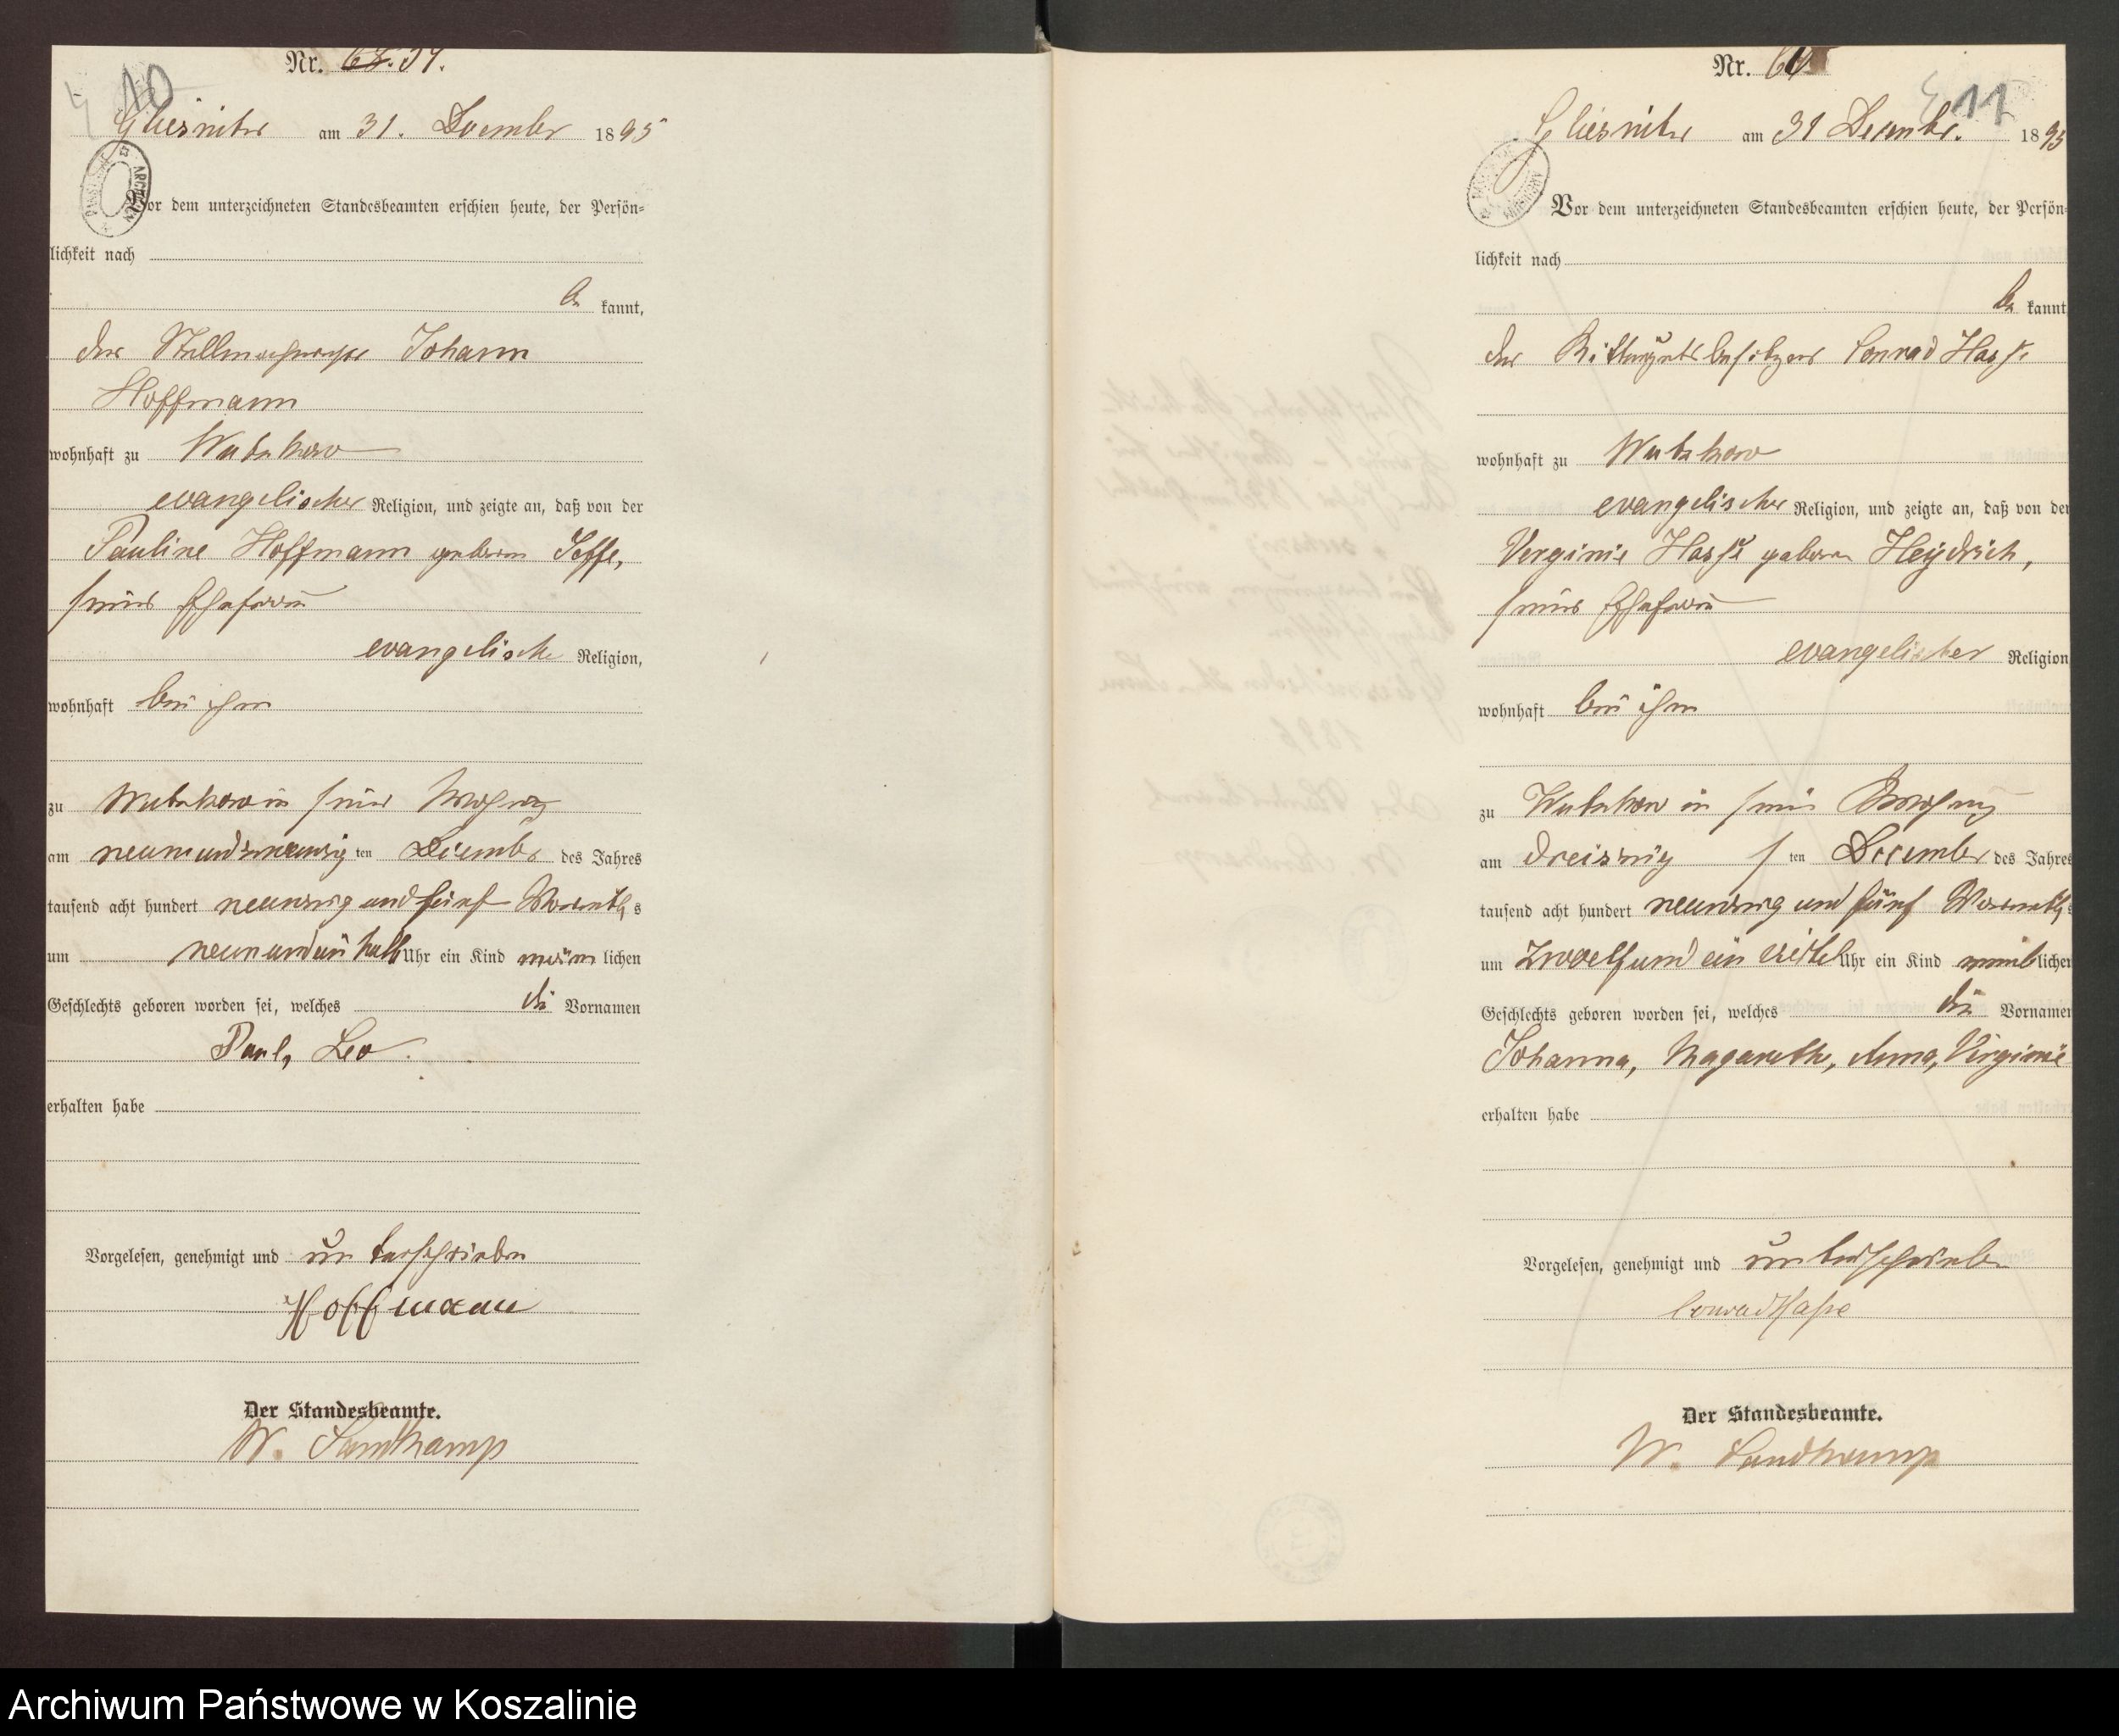 Nr. 59.
10
Gliesnitz am 31. December 1895
Vor dem unterzeichneten Standesbeamten erschien heute, der Persön-
lichkeit nach
be kannt,
der Stellmacher Johann
Hoffmann
wohnhaft zu Wutzkow
evangelischer Religion, und zeigte an, daß von der
Pauline Hoffmann geboren
seiner Ehefrau
evangelische Religion,
wohnhaft bei ihm
zu Wutzkow in seiner Wohnung
am neunundzwanzig ten December des Jahres
tausend acht hundert neunzig und fünf Vormittags
um neun und ein halb Uhr ein Kind männ lichen
Geschlechts geboren worden sei, welches die Vornamen
Paul, Leo.
erhalten habe
Vorgelesen, genehmigt und unterschrieben
Hoffmann
Der Standesbeamte.
W. Sandkamp
Nr. 60
11
Gliesnitz am 31 Decembr. 1895
Vor dem unterzeichneten Standesbeamten erschien heute, der Persön-
lichkeit nach
be kannt
der Rittergutsbesitzer Conrad Hasse
wohnhaft zu Wutzkow
evangelischer Religion, und zeigte an, daß von der
Verginie Hasse geboren Heydrich,
seiner Ehefrau
evangelischer Religion
wohnhaft bei ihm
zu Wutzkow in seiner Wohnung
am dreiszig s ten December des Jahres
tausend acht hundert neunzig und fünf Vormittags
um zwoelf und ein viertel Uhr ein Kind weib lichen
Geschlechts geboren worden sei, welches die Vornamen
Johanna, Magarethe, Anna, Virginie
erhalten habe
Vorgelesen, genehmigt und unterschrieben
Conrad Hasse
Der Standesbeamte.
W. Sandkamp
Archiwum Państwowe w Koszalinie